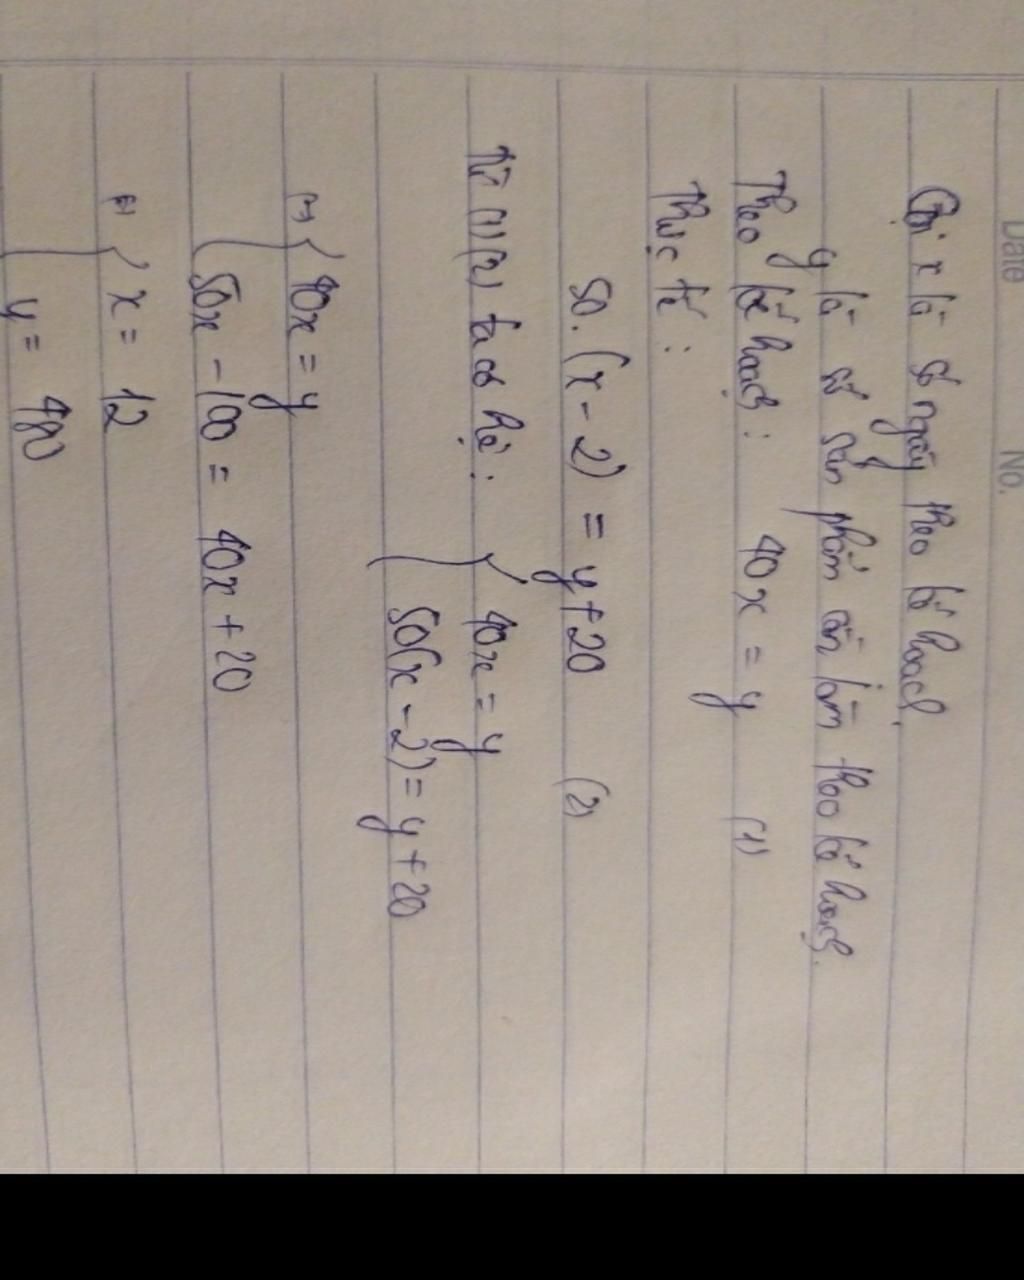 Date No.
Gọi x là số ngày theo kế hoạch
y là số sản phẩm cần làm theo kế hoạch.
Theo kế hoạch: 40x = y (1)
Thực tế:
50.(x - 2) = y + 20 (2)
Từ (1)(2) ta có hệ: { 40x = y
50(x - 2) = y + 20
(=) { 40x = y
50x - 100 = 40x + 20
(=) { x = 12
y = 480